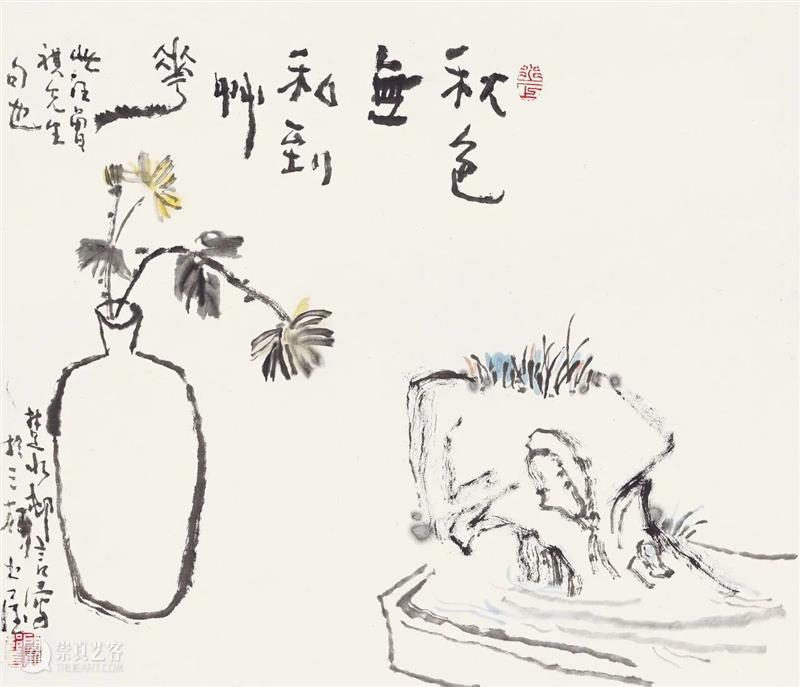 秋色
無
私到
艸
華
此汪曾
祺先生
句也
楚水
於三
崇真艺客
TRUEART.COM